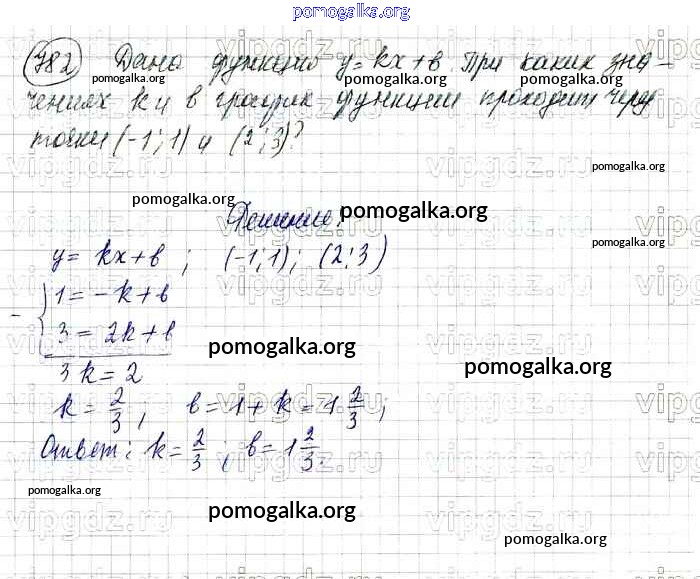 pomogalka.org
782 Дана функция y = kx + b. При каких зна-
чениях k и b график функции проходит через
точки (-1; 1) и (2; 3)?
Решение:
y = kx + b ; (-1; 1); (2; 3)
1 = -k + b
3 = 2k + b
3k = 2
k = 2/3; b = 1 + k = 1 2/3;
Ответ: k = 2/3; b = 1 2/3.
pomogalka.org
pomogalka.org
pomogalka.org
pomogalka.org
pomogalka.org
pomogalka.org
pomogalka.org
pomogalka.org
pomogalka.org
pomogalka.org
pomogalka.org
pomogalka.org
pomogalka.org
vipgdz.ru